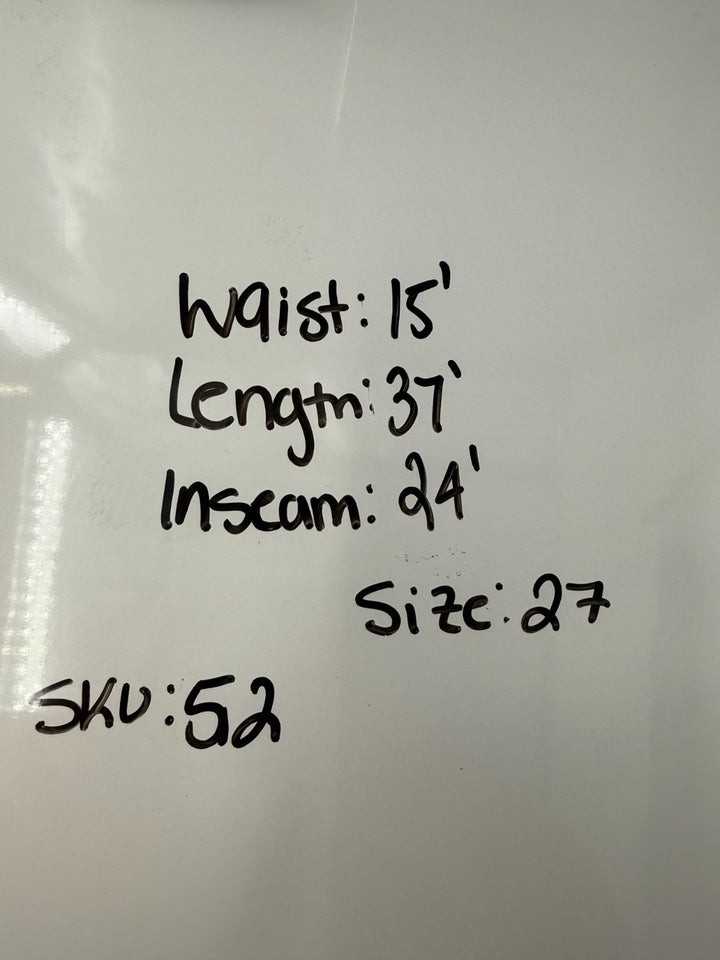 Waist: 15'
Length: 37'
Inseam: 24'
Size: 27
SKU: 52